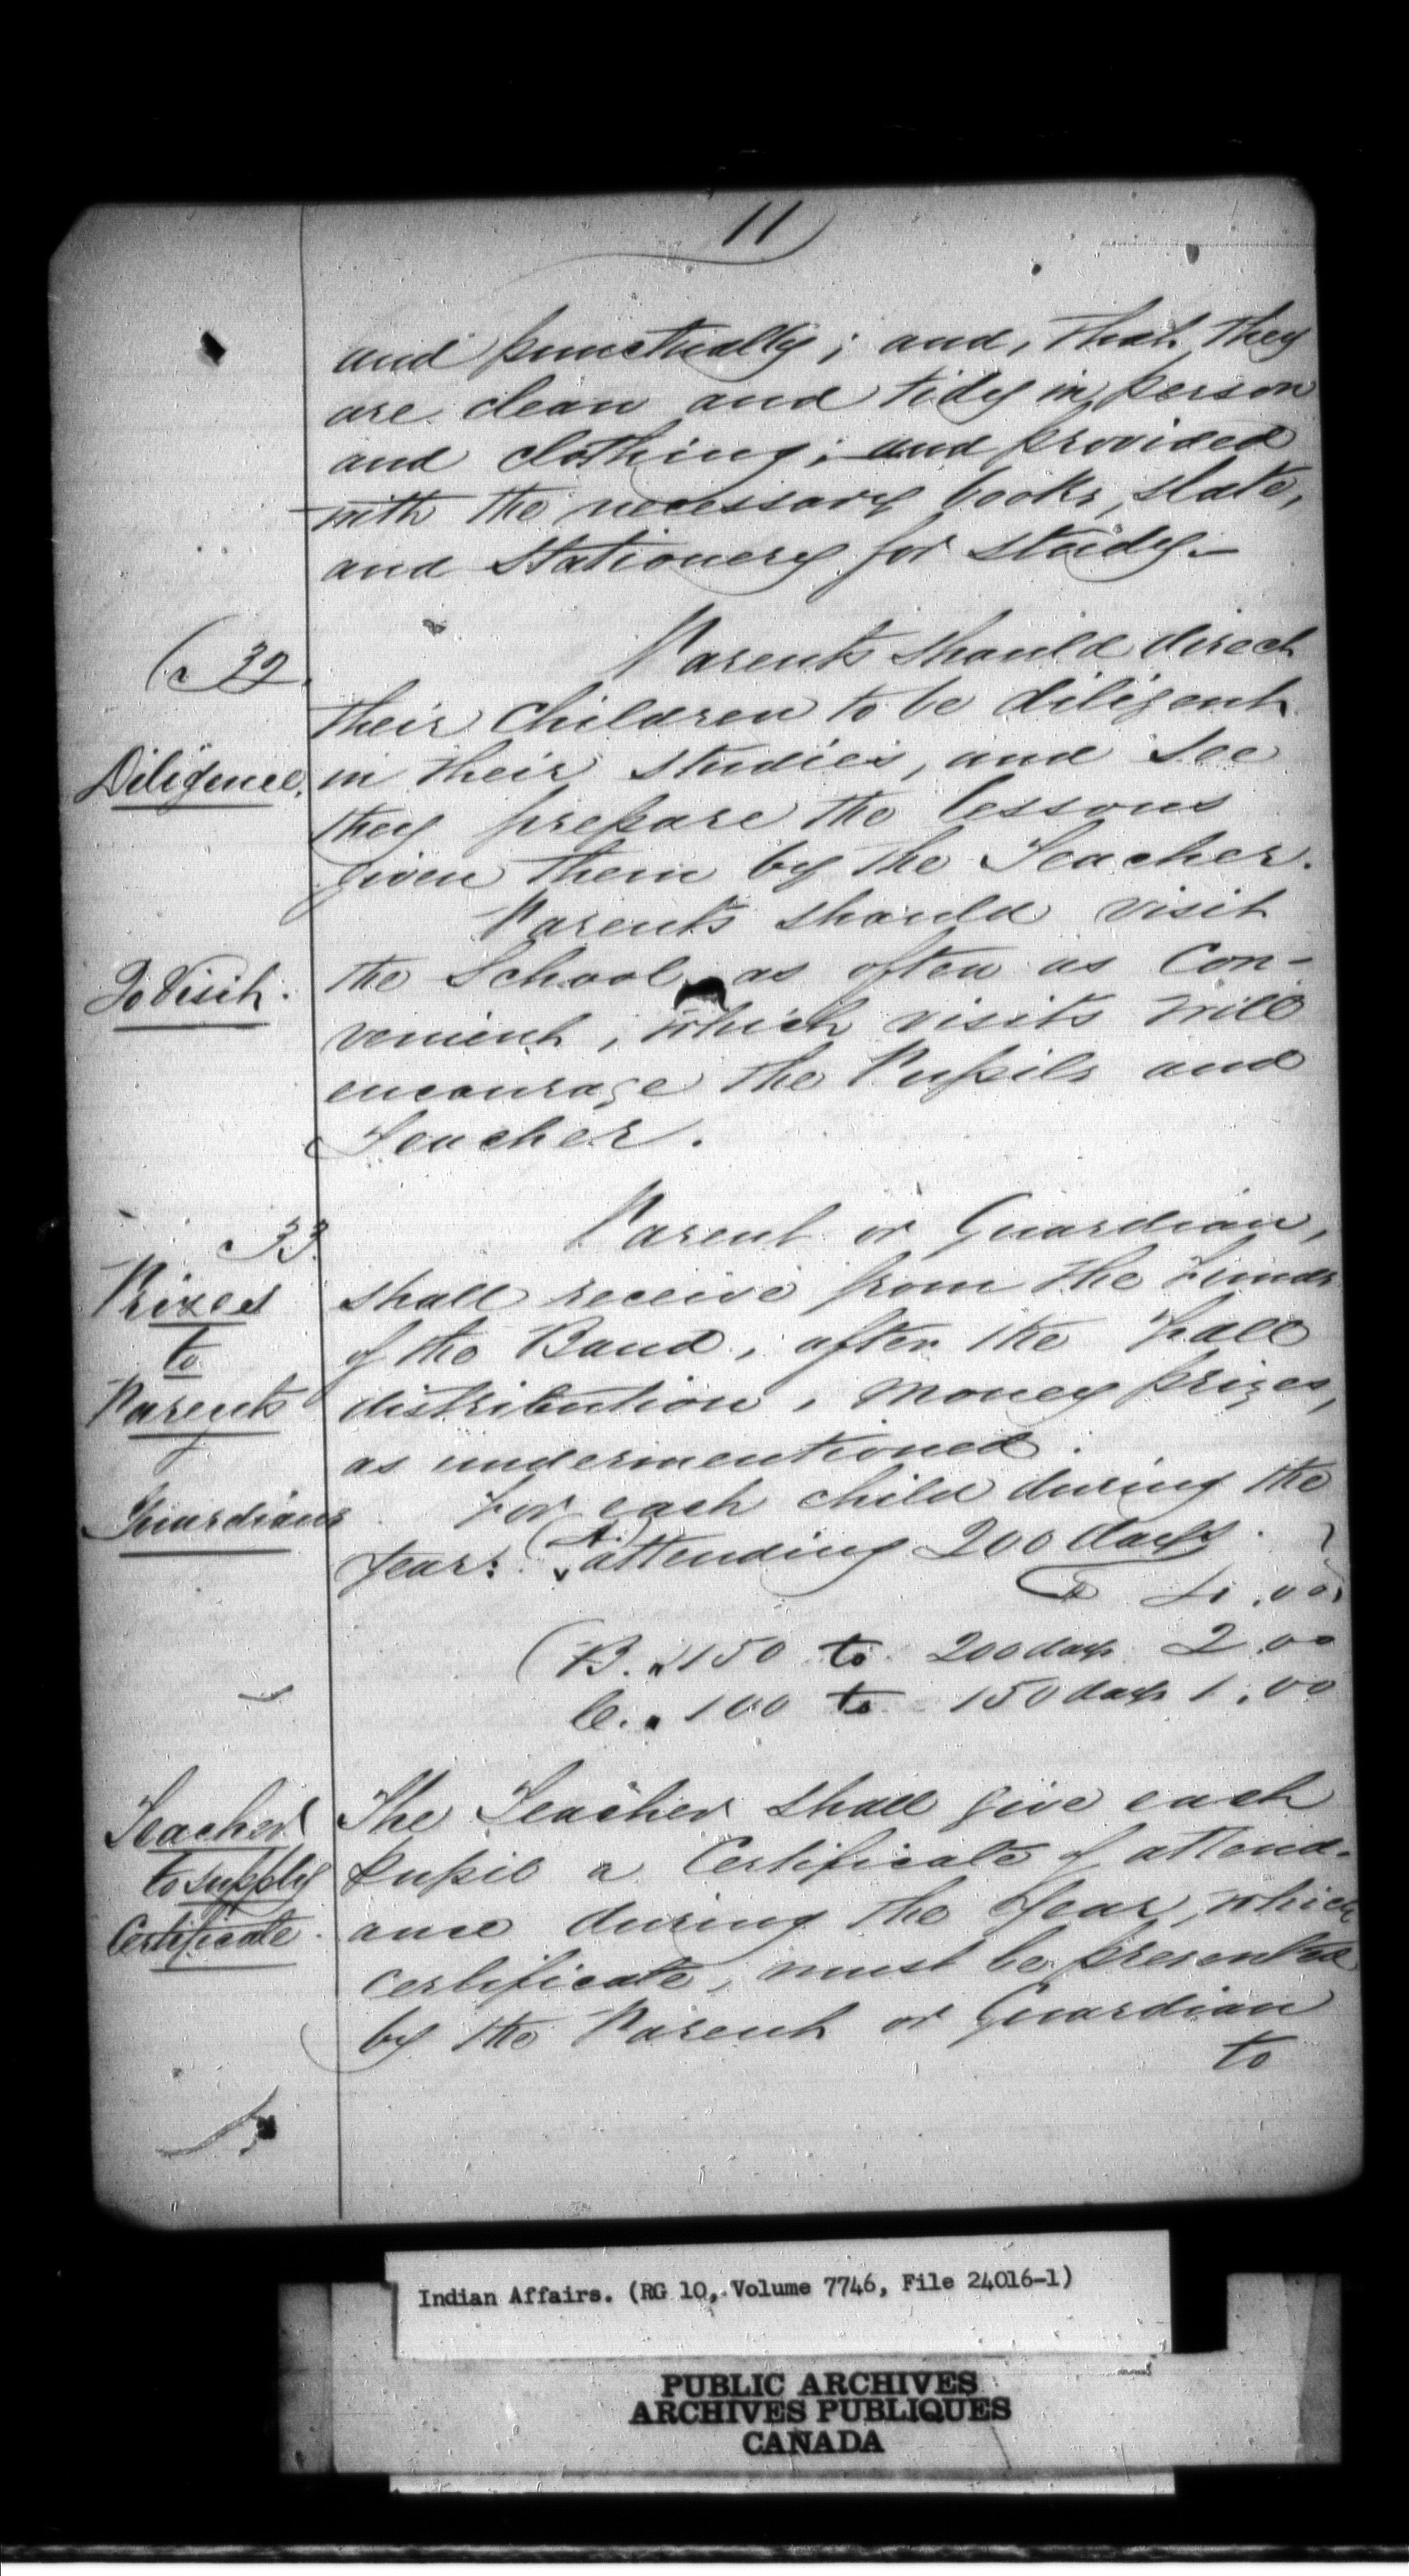 11
and punctually; and, that they
are clean and tidy in person
and clothing; and provided
with the necessary books, slate,
and Stationery for study.—
32.
Parents should direct
their Children to be diligent
Diligence.
in their studies, and see
they prepare the lessons
given them by the Teacher.
Parents should visit
To Visit.
the School as often as Con-
venient, which visits will
encourage the Pupils and
Teacher.
33.
Parent or Guardian,
Prizes
shall receive from the Funds
to
of the Band, after the Fall
Parents
distribution, money prizes,
as undermentioned.
Guardians
For each child during the
Year: (A.) attending 200 days.
4.00
(B. " 150 to 200 days 2.00
C. " 100 to 150 days 1.00
Teacher
The Teacher shall give each
to supply
Pupil a Certificate of attend-
Certificate.
ance during the Year, which
certificate, must be presented
by the Parent or Guardian
to
Indian Affairs. (RG 10, Volume 7746, File 24016-1)
PUBLIC ARCHIVES
ARCHIVES PUBLIQUES
CANADA